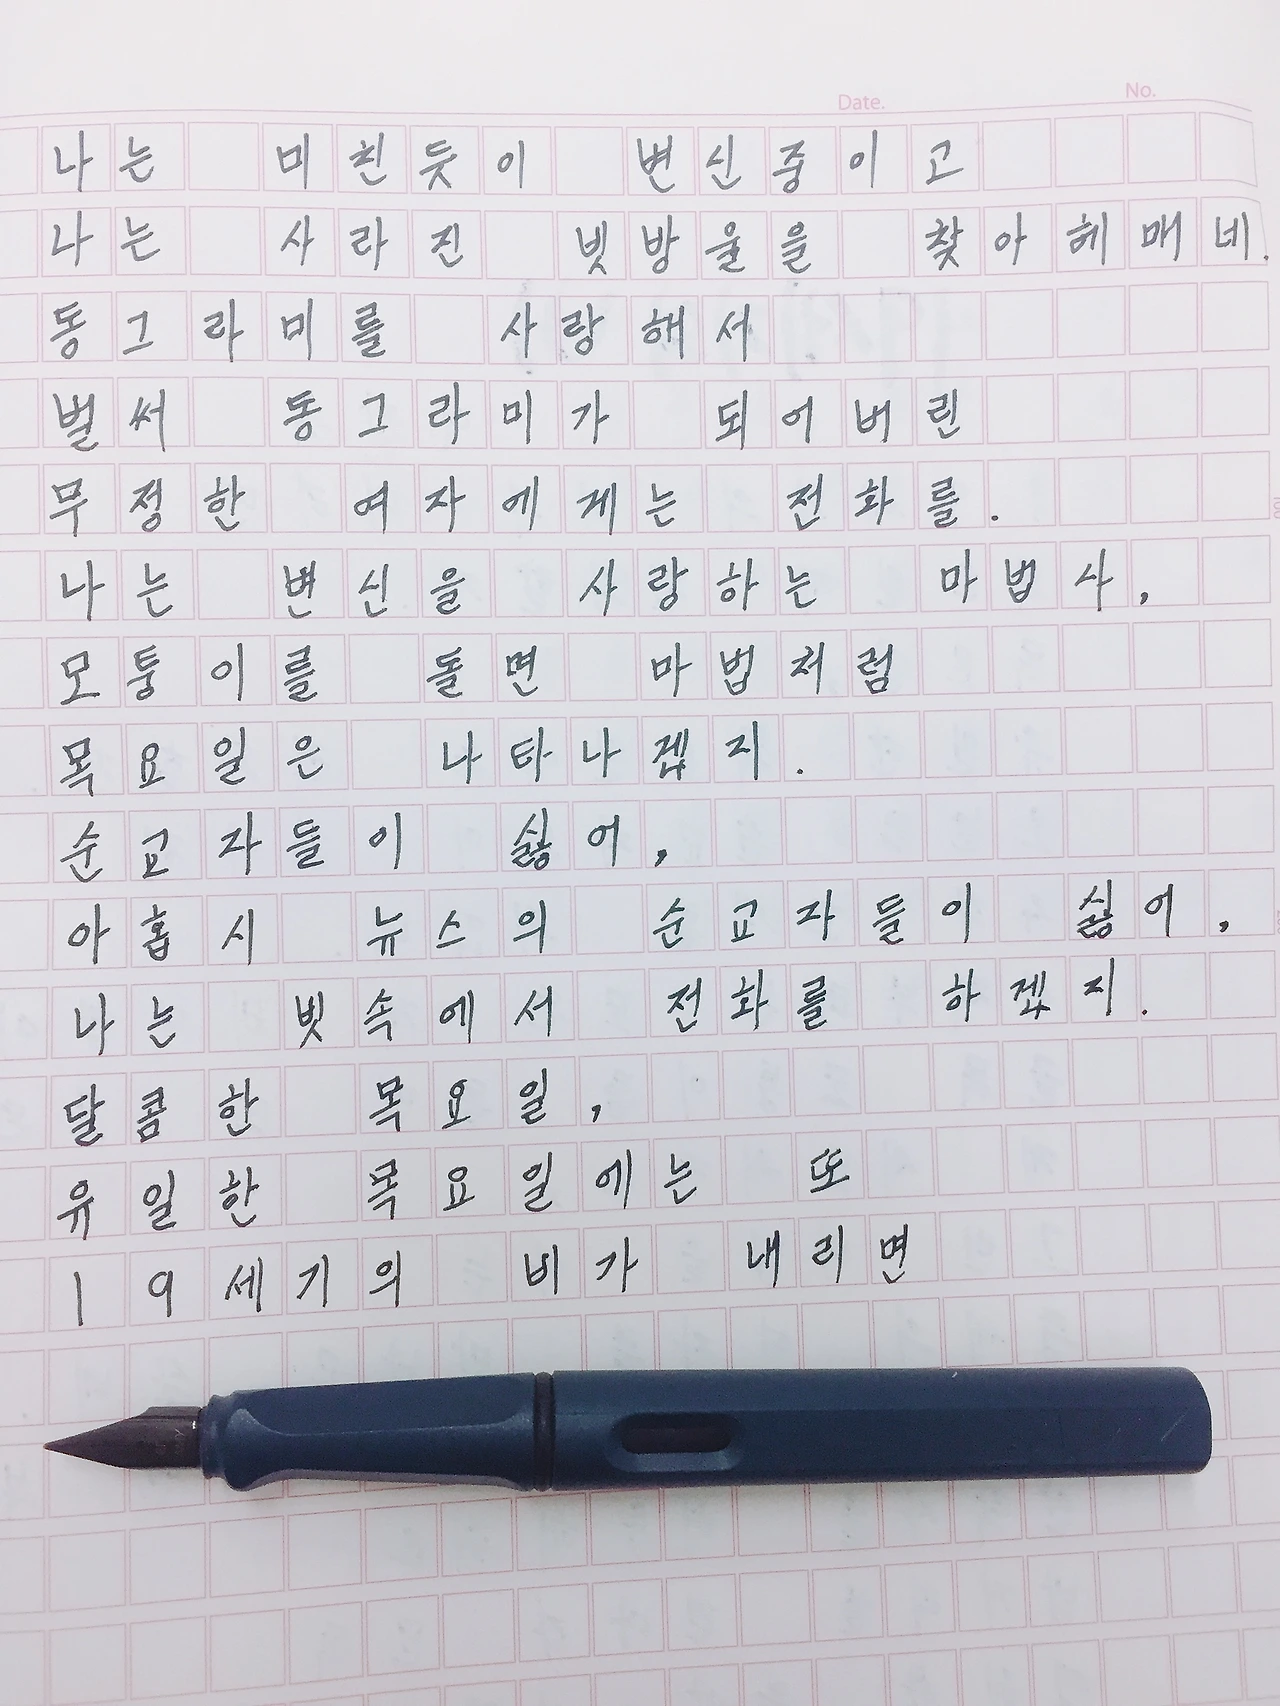 Date.
No.
나는 미친듯이 변신중이고
나는 사라진 빗방울을 찾아헤매네.
동그라미를 사랑해서
벌써 동그라미가 되어버린
무정한 여자에게는 전화를.
나는 변신을 사랑하는 마법사,
모퉁이를 돌면 마법처럼
목요일은 나타나겠지.
순교자들이 싫어,
아홉시 뉴스의 순교자들이 싫어,
나는 빗속에서 전화를 하겠지.
달콤한 목요일,
유일한 목요일에는 또
19세기의 비가 내리면